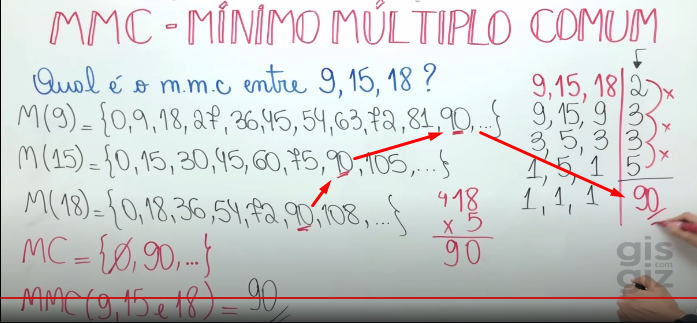 MMC - MÍNIMO MÚLTIPLO COMUM
Qual é o m.m.c entre 9, 15, 18 ?
M(9) = {0, 9, 18, 27, 36, 45, 54, 63, 72, 81, 90, ...}
M(15) = {0, 15, 30, 45, 60, 75, 90, 105, ...}
M(18) = {0, 18, 36, 54, 72, 90, 108, ...}
MC = {0, 90, ...}
MMC(9, 15 e 18) = 90
418
x 5
90
9, 15, 18 | 2 x
9, 15, 9 | 3 x
3, 5, 3 | 3 x
1, 5, 1 | 5
1, 1, 1 | 90
gis
.com
giz